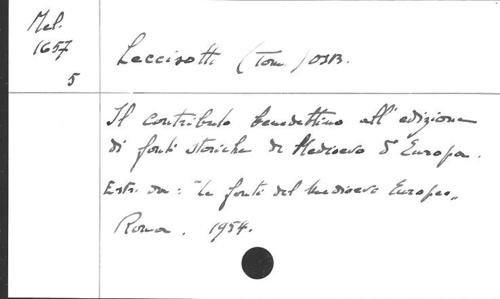 Mel.
1657
5
Leccisotti (Tom.) OSB.
Il contributo benedettino all'edizione
di fonti storiche di Medioevo d'Europa.
Estr. da: "Le fonti del Medioevo Europeo"
Roma. 1954.